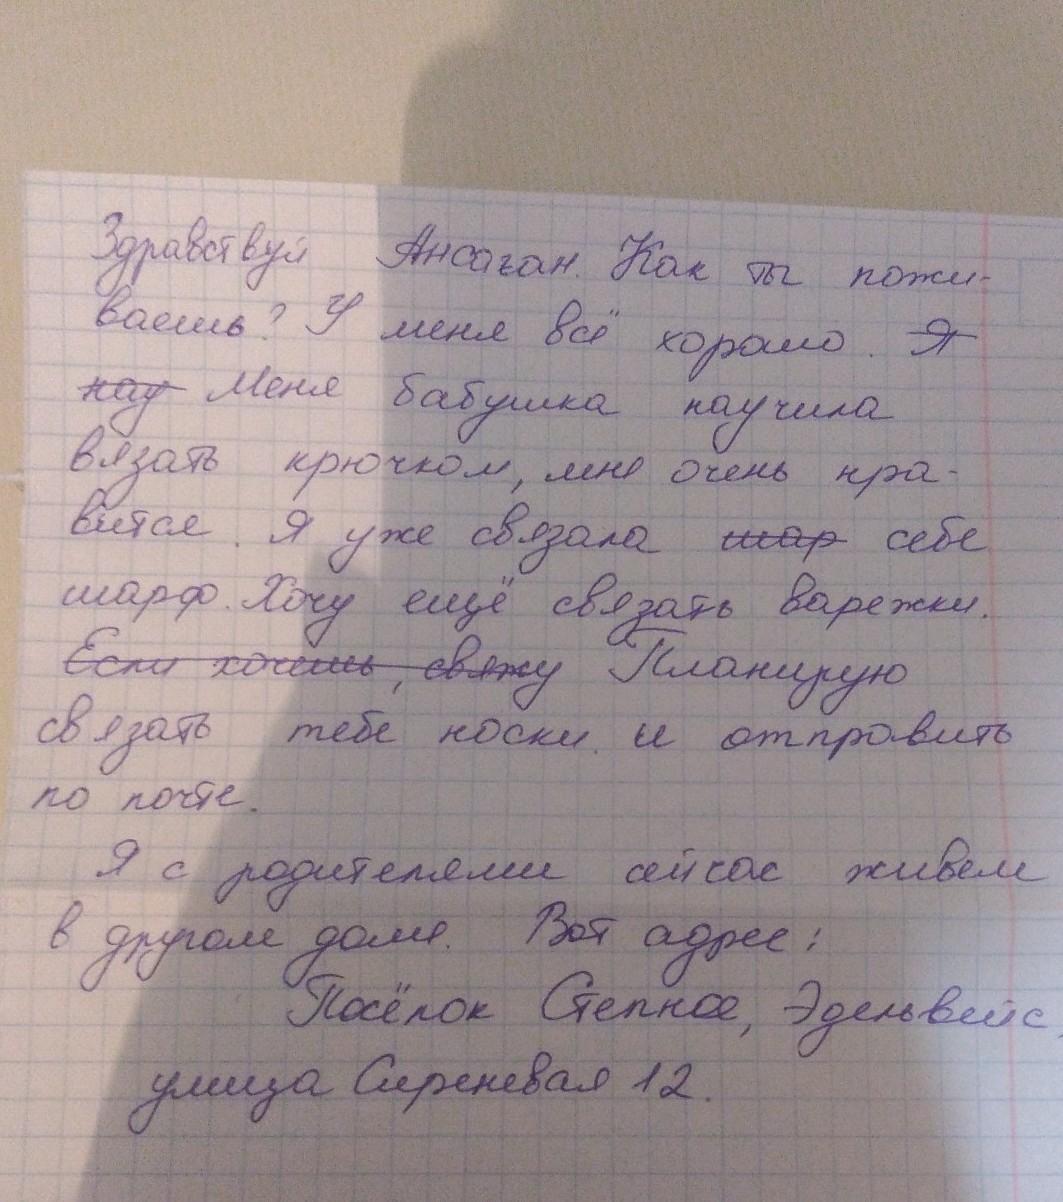 Здравствуй Ансаган. Как ты пожи-
ваешь? У меня всё хорошо. Я
нау Меня бабушка научила
вязать крючком, мне очень нра-
вится. Я уже связала шар себе
шарф. Хочу ещё связать варежки.
Если хочешь, свяжу Планирую
связать тебе носки. и отправить
по почте.
Я с родителями сейчас живем
в другом доме. Вот адрес:
Посёлок Степное, Эдельвейс,
улица Сиреневая 12.